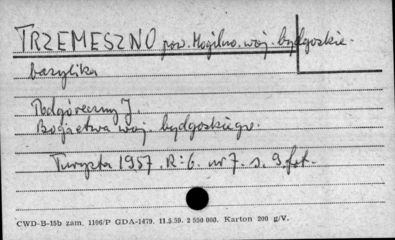 TRZEMESZNO pow. Mogilno. woj. bydgoskie.
bazylika
Podgóreczny J
Bogactwa woj. bydgoskiego.
Turysta 1957. R: 6. nr 7. s. 9. fot.
CWD-B-15b zam. 1106/P GDA-1479. 11.3.59. 2 550 000. Karton 200 g/V.